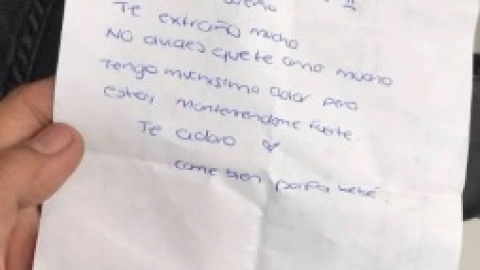 Te extraño mucho
NO olvides que te amo mucho
Tengo muchisimo dolor pero
estoy manteniendome fuerte.
Te adoro
come bien porfa bebé.